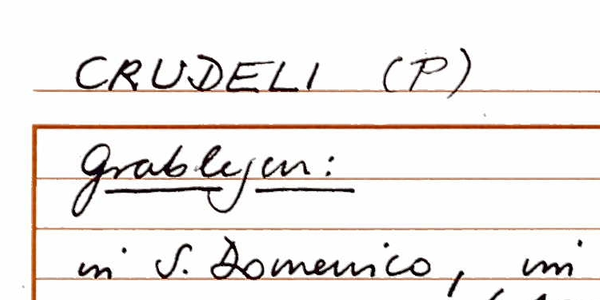 CRUDELI (P)
Grablegen:
in S. Domenico, im